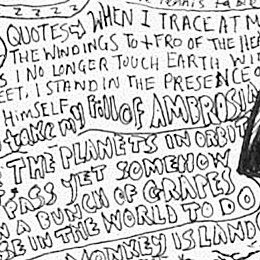 z z z z z
TENNIS TABLE
QUOTES→ WHEN I TRACE AT M
THE WINDINGS TO + FRO OF THE HEA
I NO LONGER TOUCH EARTH WI
EET, I STAND IN THE PRESENCE O
HIMSELF
+ take my fill OF AMBROSIA
THE PLANETS IN ORBIT
PASS YET SOMEHOW
A BUNCH OF GRAPES
SE IN THE WORLD TO DO
MONKEY ISLAND